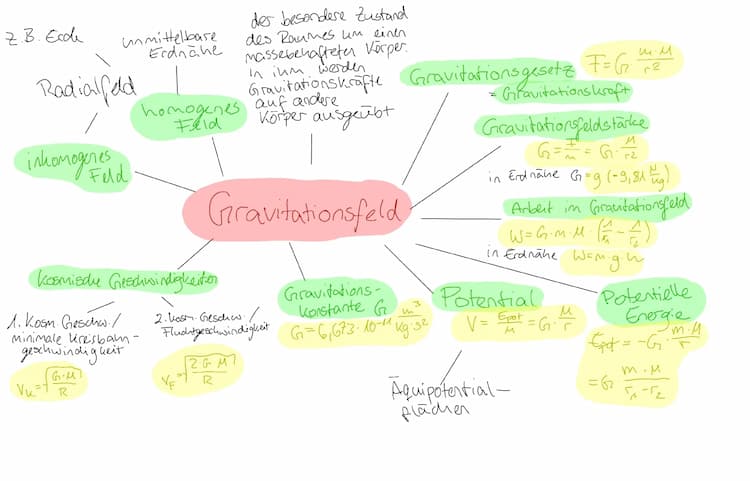 z.B. Erde
Radialfeld
inhomogenes
Feld
unmittelbare
Erdnähe
homogenes
Feld
der besondere Zustand
des Raumes um einen
massebehafteten Körper.
In ihm werden
Gravitationskräfte
auf andere
Körper ausgeübt
Gravitationsgesetz
= Gravitationskraft
F = G m·M / r²
Gravitationsfeldstärke
G = F/m = G · M/r²
in Erdnähe G = g (-9,81 N/kg)
Arbeit im Gravitationsfeld
W = G·m·M · (1/r₁ - 1/r₂)
in Erdnähe W = m·g·h
Gravitationsfeld
kosmische Geschwindigkeiten
1. Kosm Geschw./
minimale Kreisbahn-
geschwindigkeit
v_K = √(G·M / R)
2. Kosm. Geschw./
Fluchtgeschwindigkeit
v_F = √(2 G M / R)
Gravitations-
konstante G
G = 6,673 · 10⁻¹¹ m³ / kg·s²
Potential
V = Epot / M = G · M/r
Äquipotential-
flächen
Potentielle
Energie
Epot = -G · m·M / r
= G m·M / r₁-r₂